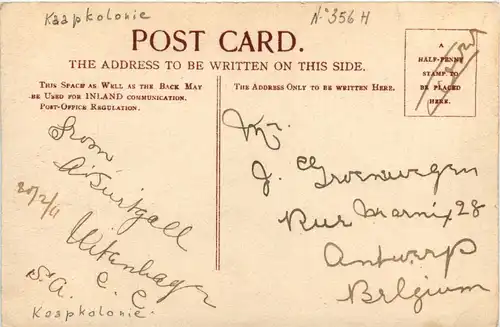 Kaapkolonie
No 356 H
POST CARD.
THE ADDRESS TO BE WRITTEN ON THIS SIDE.
THIS SPACE AS WELL AS THE BACK MAY
BE USED FOR INLAND COMMUNICATION.
POST-OFFICE REGULATION.
THE ADDRESS ONLY TO BE WRITTEN HERE.
A
HALF-PENNY
STAMP TO
BE PLACED
HERE.
from
20/2/11
Uitenhagen
C. C.
S.A.
Kaapkolonie
Mr.
J. Groenwegen
Rue Marnix 28
Antwerp
Belgium